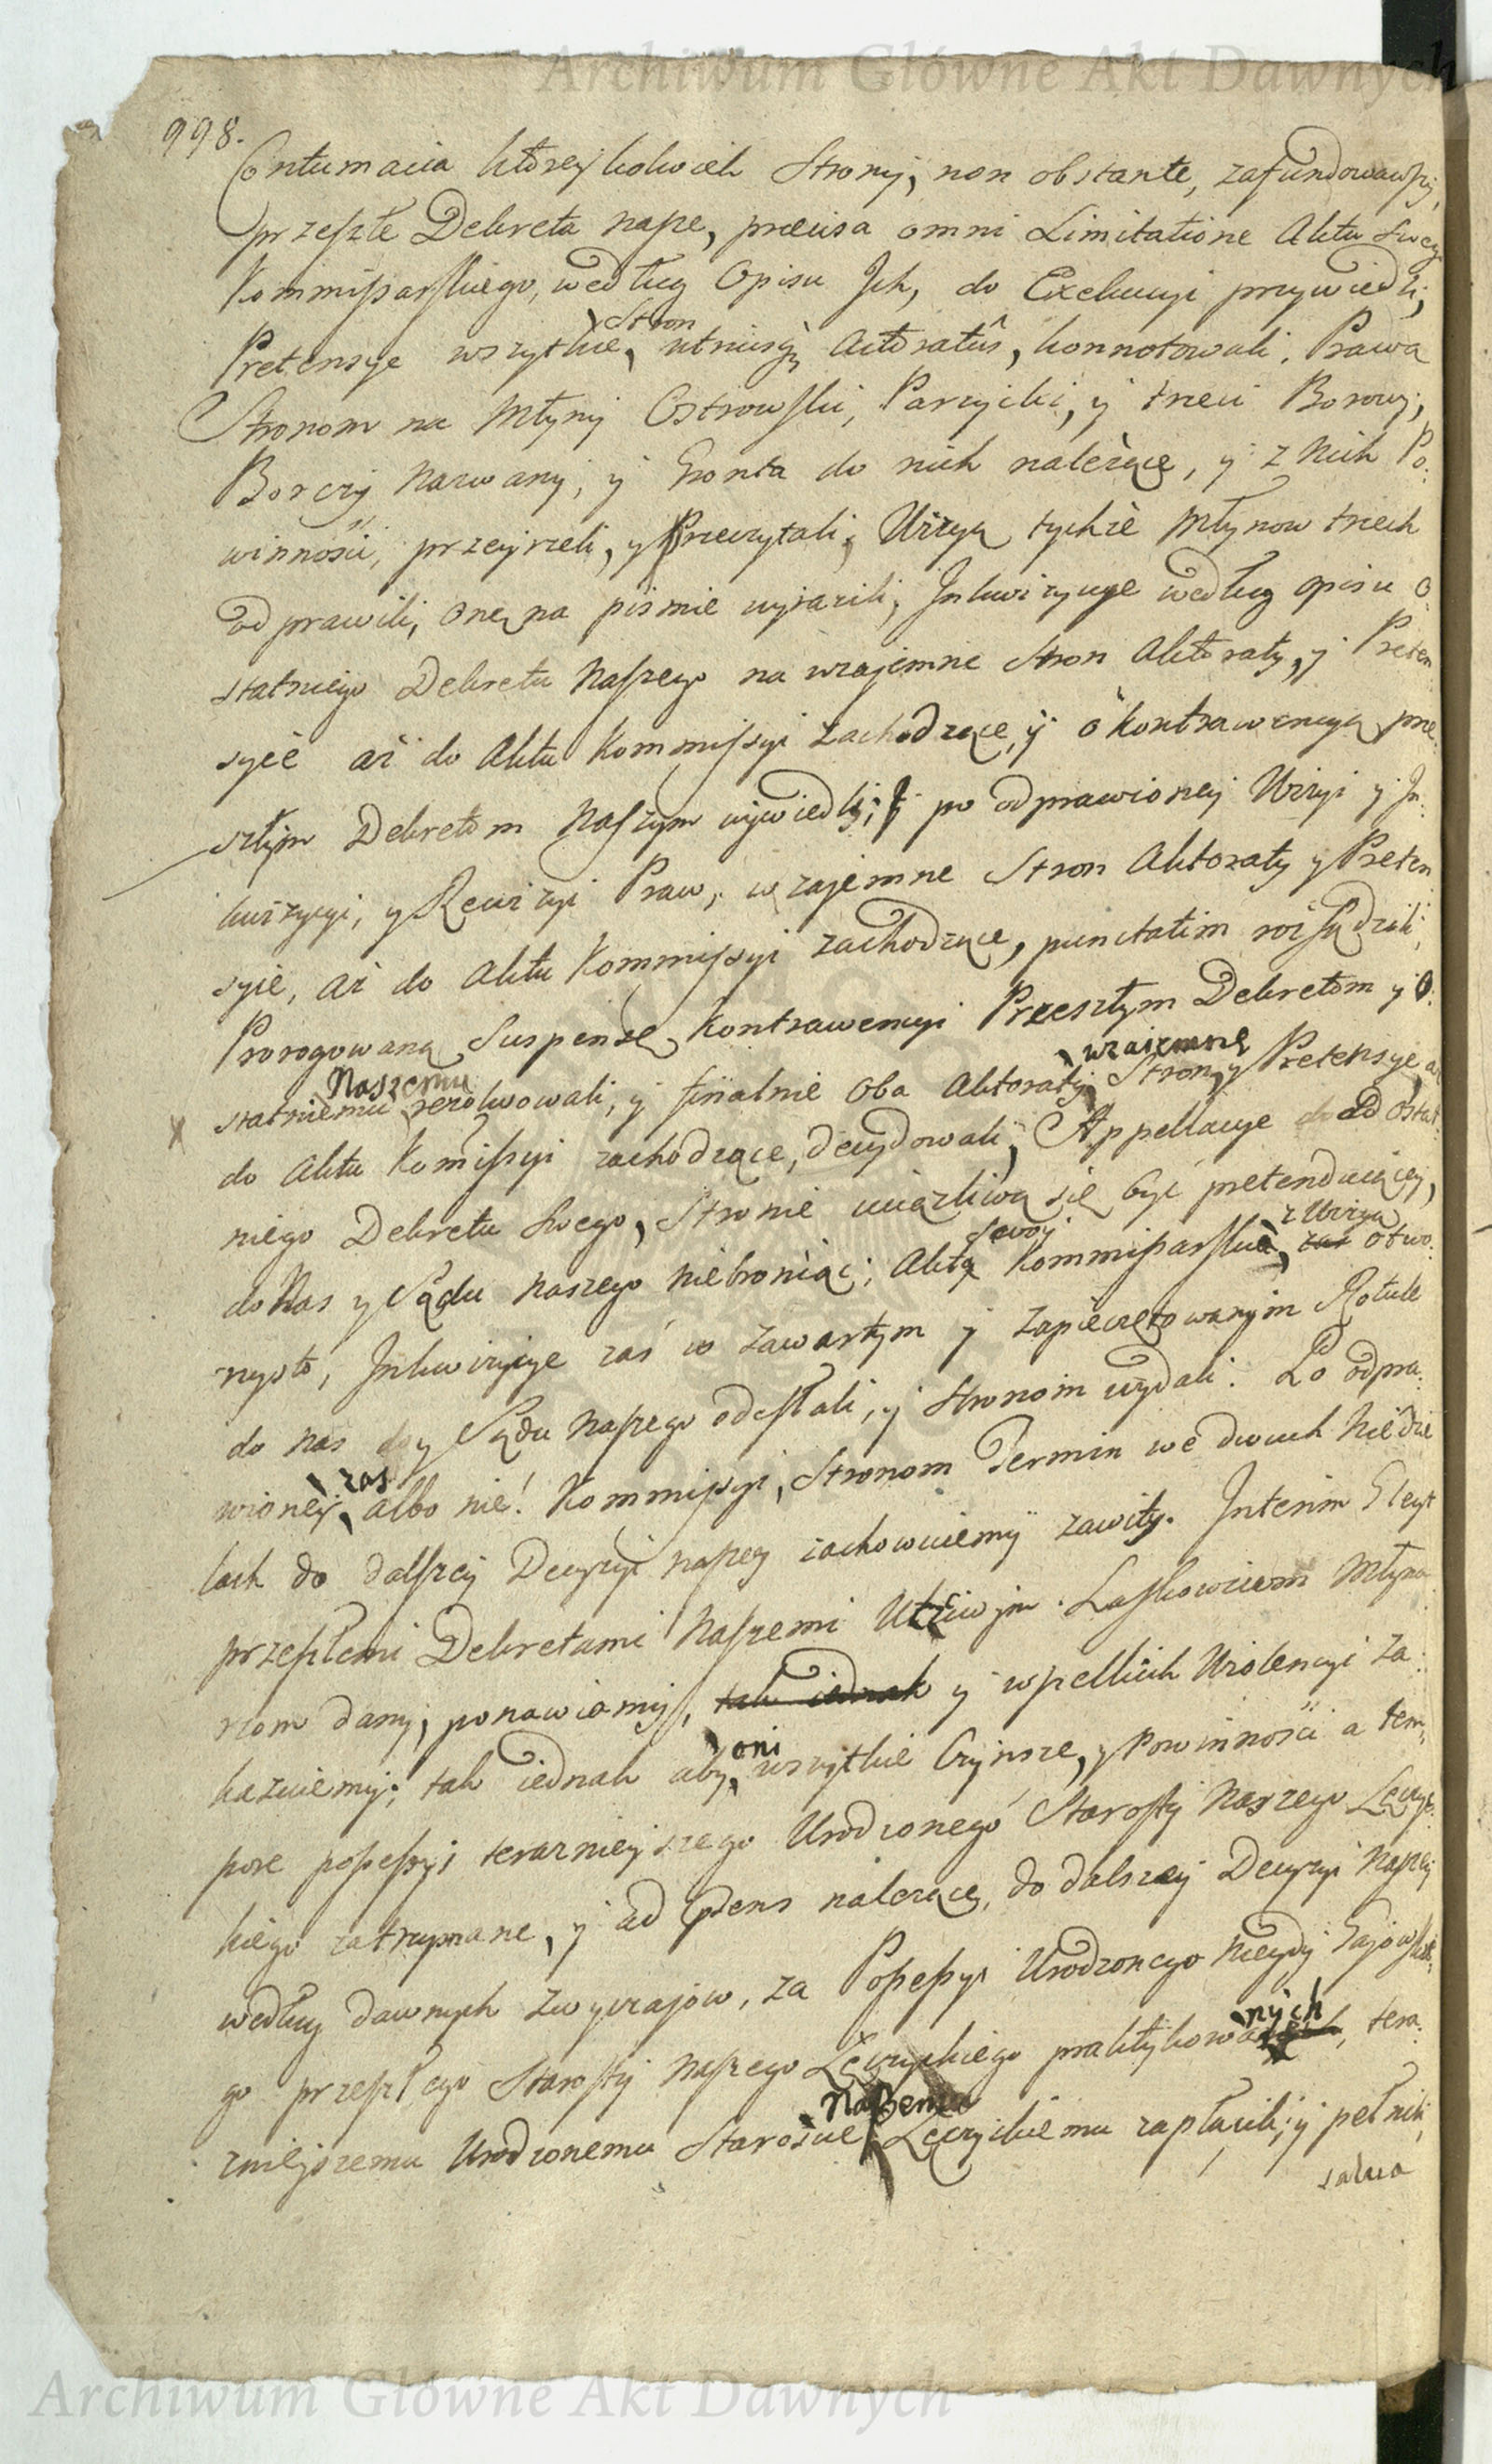 Archiwum Główne Akt Dawnych
998.
Contumacia którejkolwiek Strony, non obstante, zafundowawszy,
przeszłe Dekreta nasze, præcisa omni Limitatione Aktu swego
Kommissarskiego, według Opisu Ich, do Exekucyi przywiedli,
Stron
Pretensye wszytkie, utriusq Actoratûs, konnotowali, Prawa
Stronom na Młyny Ostrowski, Parzycki, y trzeci Borowy,
Borczy nazwany, y Gronta do nich należące, y z nich Po:
winności, przejrzeli, y Przeczytali, Wizyą tychże Młynow trzech
odprawili, onę na pismie wyrazili, Inkwizycye według opisu o:
statniego Dekretu Naszego na wzajemne Stron Aktoraty, y Preten
sye aż do Aktu Kommissyi zachodzące, y o kontrawencyą prze:
szłym Dekretom Naszym wywiedli; y po odprawioney Wizyi y In:
kwizycyi, y Rewizyi Praw, wzajemne Stron Aktoraty y Preten
sye, aż do Aktu Kommissyi zachodzące, punctatim rozsądzili,
Prorogowaną Suspensę Kontrawencyi Przeszłym Dekretom y O:
Naszemu wzaiemne
statniemu rezolwowali, y finalnie oba Aktoraty Stron, y Pretensye aż
do Aktu Komissyi zachodzące, decydowali, Appellacye od ostat:
niego Dekretu swego, Stronie uciążliwą się być pretenduiącey,
swoy z Wizyą
do Nas y Sądu naszego niebroniąc; Aktą Kommissarską, zaś otwo:
rzysto, Inkwizycye zaś w zawartym y zapieczętowanym Rotule
do nas y Sądu naszego odesłali, y Stronom wydali. Po odpra:
zaś
wioney, albo nie! Kommissyi, Stronom Termin we dwuch Niedzie
lach do dalszey Decyzyi naszey zachowuiemy zawity. Interim Gleyt
przeszłemi Dekretami Naszemi Utciwym Laskowiczom Młyna
rzom dany, ponawiamy, tak iednak y wszelkich Wiolencyi za:
oni
kazuiemy; tak iednak aby, wszytkie Czynsze, y Powinności a tem:
pore possessyi terazniejszego Urodzonego Starosty Naszego Łęczyc:
kiego zatrzymane, y ad præsens należące, do dalszey Decyzyi Naszey
według dawnych zwyczajow, za Possessyi Urodzonego niegdy Gajowskie
nych
go przeszłego Starosty Naszego Łęczyckiego praktykowa, tera:
Naszemu
znieyszemu Urodzonemu Starościе Łęczyckiemu zapłacili, y pełnili,
salva
Archiwum Główne Akt Dawnych